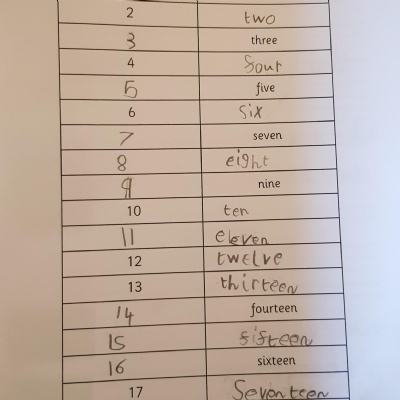 2 two
3 three
4 four
5 five
6 six
7 seven
8 eight
9 nine
10 ten
11 eleven
12 twelve
13 thirteen
14 fourteen
15 fifteen
16 sixteen
17 Seventeen